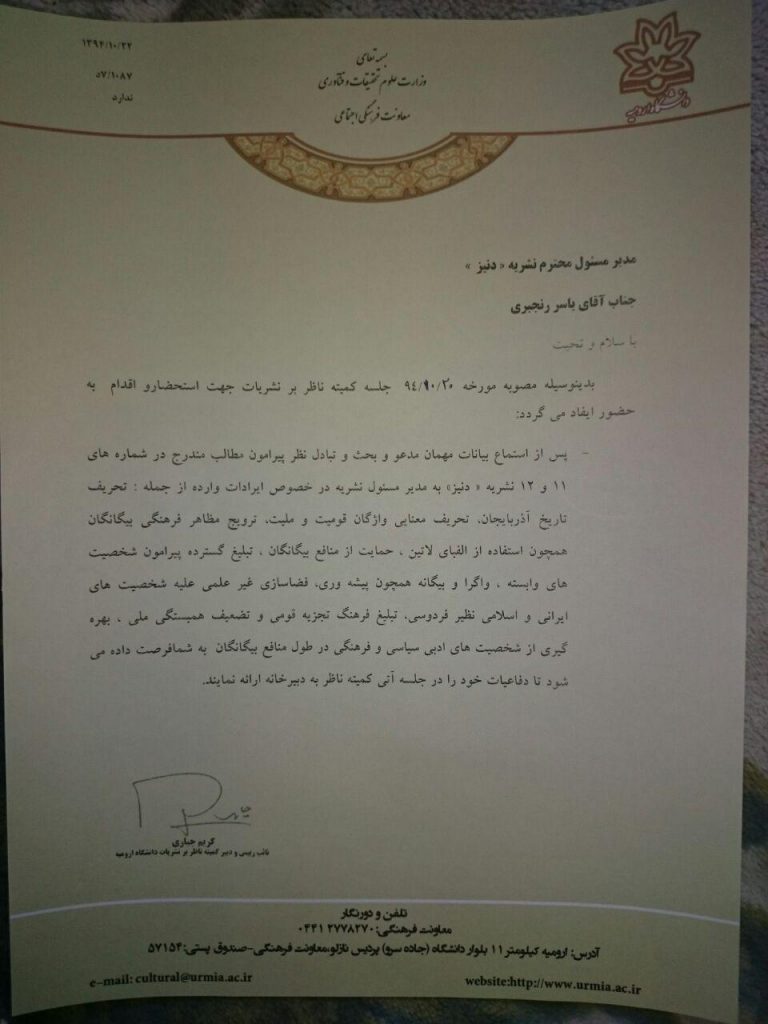 ۱۳۹۴/۱۰/۲۲
۵/۷/۱۰۸۷
ندارد
بسمه تعالی
وزارت علوم تحقیقات و فناوری
معاونت فرهنگی اجتماعی
دانشگاه ارومیه
مدیر مسئول محترم نشریه « دنیز »
جناب آقای یاسر رنجبری
با سلام و تحیت
بدینوسیله مصوبه مورخه ۹۴/۱۰/۲۰ جلسه کمیته ناظر بر نشریات جهت استحضارو اقدام به
حضور ایفاد می گردد:
- پس از استماع بیانات مهمان مدعو و بحث و تبادل نظر پیرامون مطالب مندرج در شماره های
۱۱ و ۱۲ نشریه « دنیز» به مدیر مسئول نشریه در خصوص ایرادات وارده از جمله : تحریف
تاریخ آذربایجان، تحریف معنایی واژگان قومیت و ملیت، ترویج مظاهر فرهنگی بیگانگان
همچون استفاده از الفبای لاتین ، حمایت از منافع بیگانگان ، تبلیغ گسترده پیرامون شخصیت
های وابسته ، واگرا و بیگانه همچون پیشه وری، فضاسازی غیر علمی علیه شخصیت های
ایرانی و اسلامی نظیر فردوسی، تبلیغ فرهنگ تجزیه قومی و تضعیف همبستگی ملی ، بهره
گیری از شخصیت های ادبی سیاسی و فرهنگی در طول منافع بیگانگان به شمافرصت داده می
شود تا دفاعیات خود را در جلسه آتی کمیته ناظر به دبیرخانه ارائه نمایند.
کریم جباری
نائب رییس و دبیر کمیته ناظر بر نشریات دانشگاه ارومیه
تلفن و دورنگار
معاونت فرهنگی: ۲۷۷۸۲۷۰ ۰۴۴۱
آدرس: ارومیه کیلومتر ۱۱ بلوار دانشگاه (جاده سرو) پردیس نازلو،معاونت فرهنگی-صندوق پستی: ۵۷۱۵۴
e-mail: cultural@urmia.ac.ir
website:http://www.urmia.ac.ir